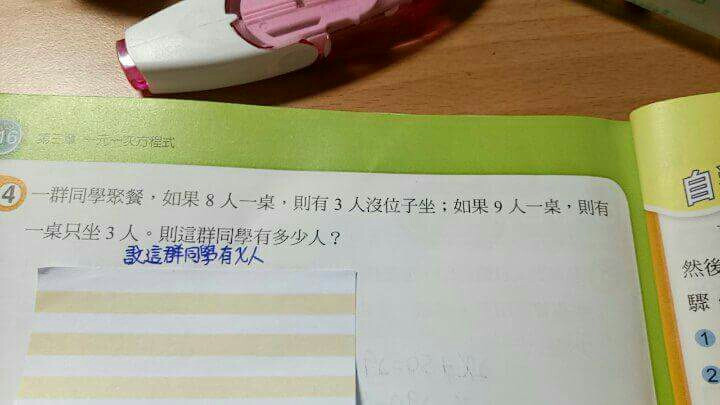 16 第三章 一元一次方程式
4 一群同學聚餐，如果 8 人一桌，則有 3 人沒位子坐；如果 9 人一桌，則有
一桌只坐 3 人。則這群同學有多少人？
設這群同學有x人
自
然後
驟
1
2